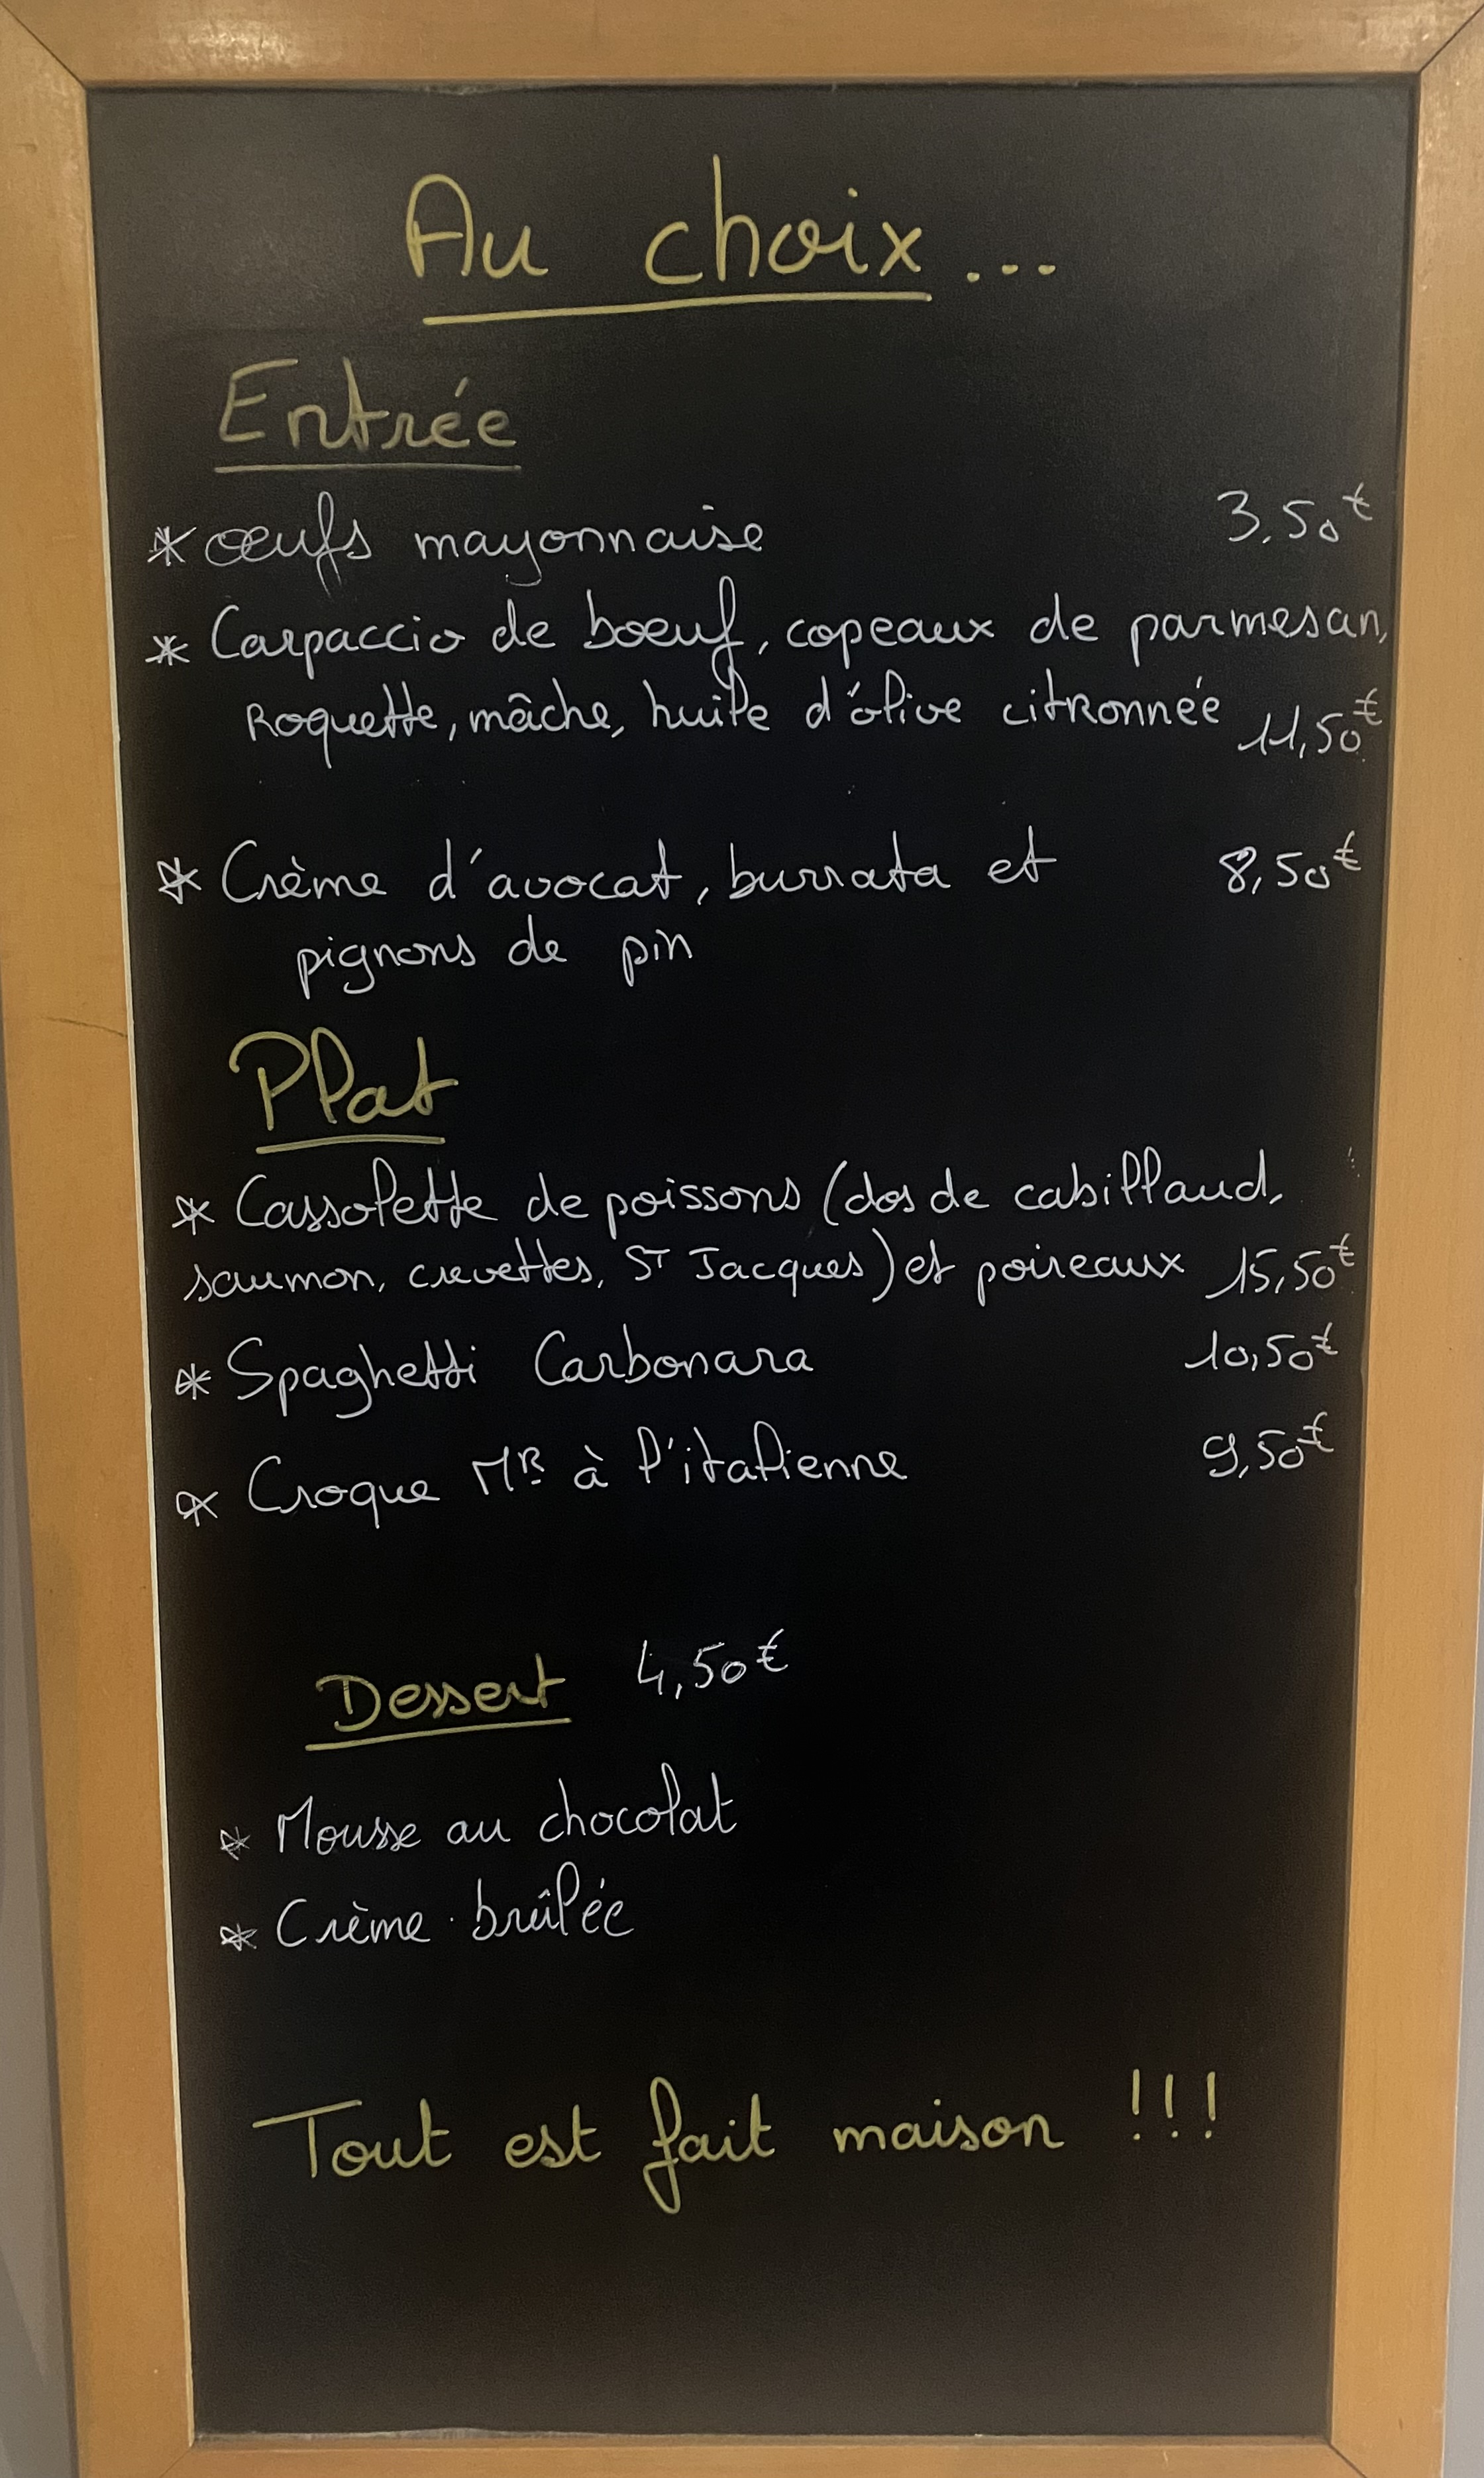 Au choix...
Entrée
* œufs mayonnaise 3,50€
* Carpaccio de boeuf, copeaux de parmesan,
Roquette, mâche, huile d'olive citronnée 11,50€
* Crème d'avocat, burrata et 8,50€
pignons de pin
Plat
* Cassolette de poissons (dos de cabillaud,
saumon, crevettes, ST Jacques) et poireaux 15,50€
* Spaghetti Carbonara 10,50€
* Croque MR à l'italienne 9,50€
Dessert 4,50€
* Mousse au chocolat
* Crème brûlée
Tout est fait maison !!!